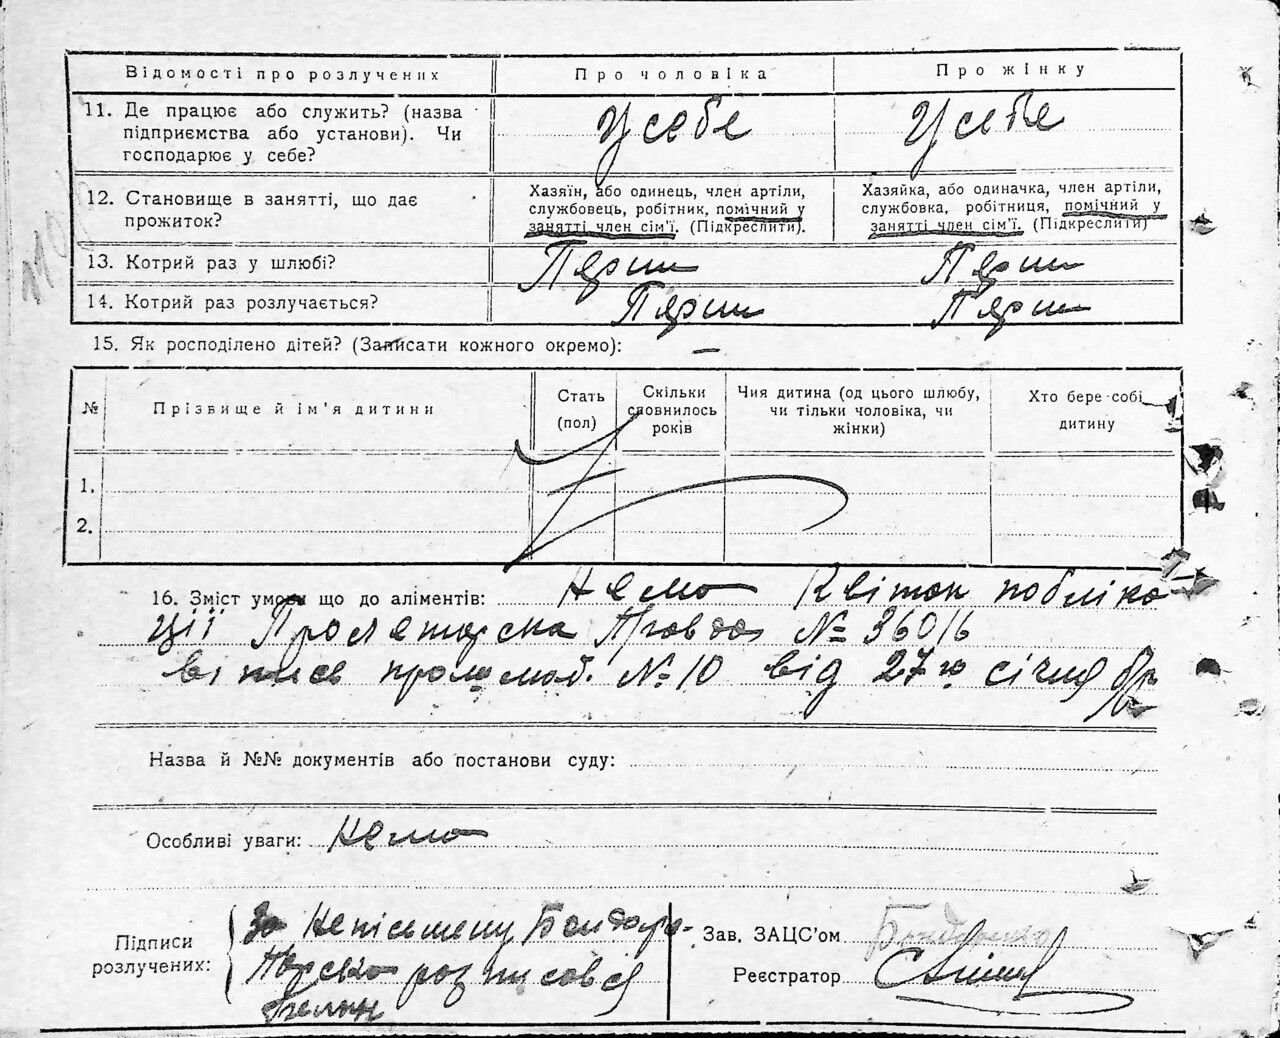 Відомості про розлучених Про чоловіка Про жінку
11. Де працює або служить? (назва підприємства або установи). Чи господарює у себе? У себе У себе
12. Становище в занятті, що дає прожиток? Хазяїн, або одинець, член артіли, службовець, робітник, помічний у занятті член сім'ї. (Підкреслити). Хазяйка, або одиначка, член артіли, службовка, робітниця, помічний у занятті член сім'ї. (Підкреслити)
13. Котрий раз у шлюбі? Перш Перш
14. Котрий раз розлучається? Перш Перш
15. Як росподілено дітей? (Записати кожного окремо): —
№ Прізвище й ім'я дитини Стать (пол) Скільки сповнилось років Чия дитина (од цього шлюбу, чи тільки чоловіка, чи жінки) Хто бере собі дитину
1.
2.
16. Зміст умови що до аліментів: Нема Квіток поблікa-
ції Пролетарска Правда № 360/6
вітись № 10 від 27го січня б/р
Назва й №№ документів або постанови суду:
Особливі уваги: Нема
Підписи розлучених: За Непісьмену Бондар-
розписовся
Зав. ЗАЦС'ом Бондаренко
Реєстратор